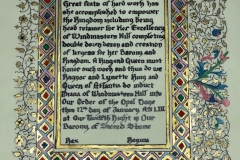 Great feats of hard work has
she accomplished to empower
the Kingdom including being
head retainer for Her Excellency
of Windmasters Hill completing
double duty and creation
of for her Barony and
Kingdom. A King and Queen must
honor such work and thus do we
Ragnar and Lynette King and
Queen of Atlantia do induct
of Windmasters Hill into
Our Order of the Opal Done
this 12th day of January AS LIII
at our Twelfth Night in Our
Barony of Sacred Stone
Rex Regina